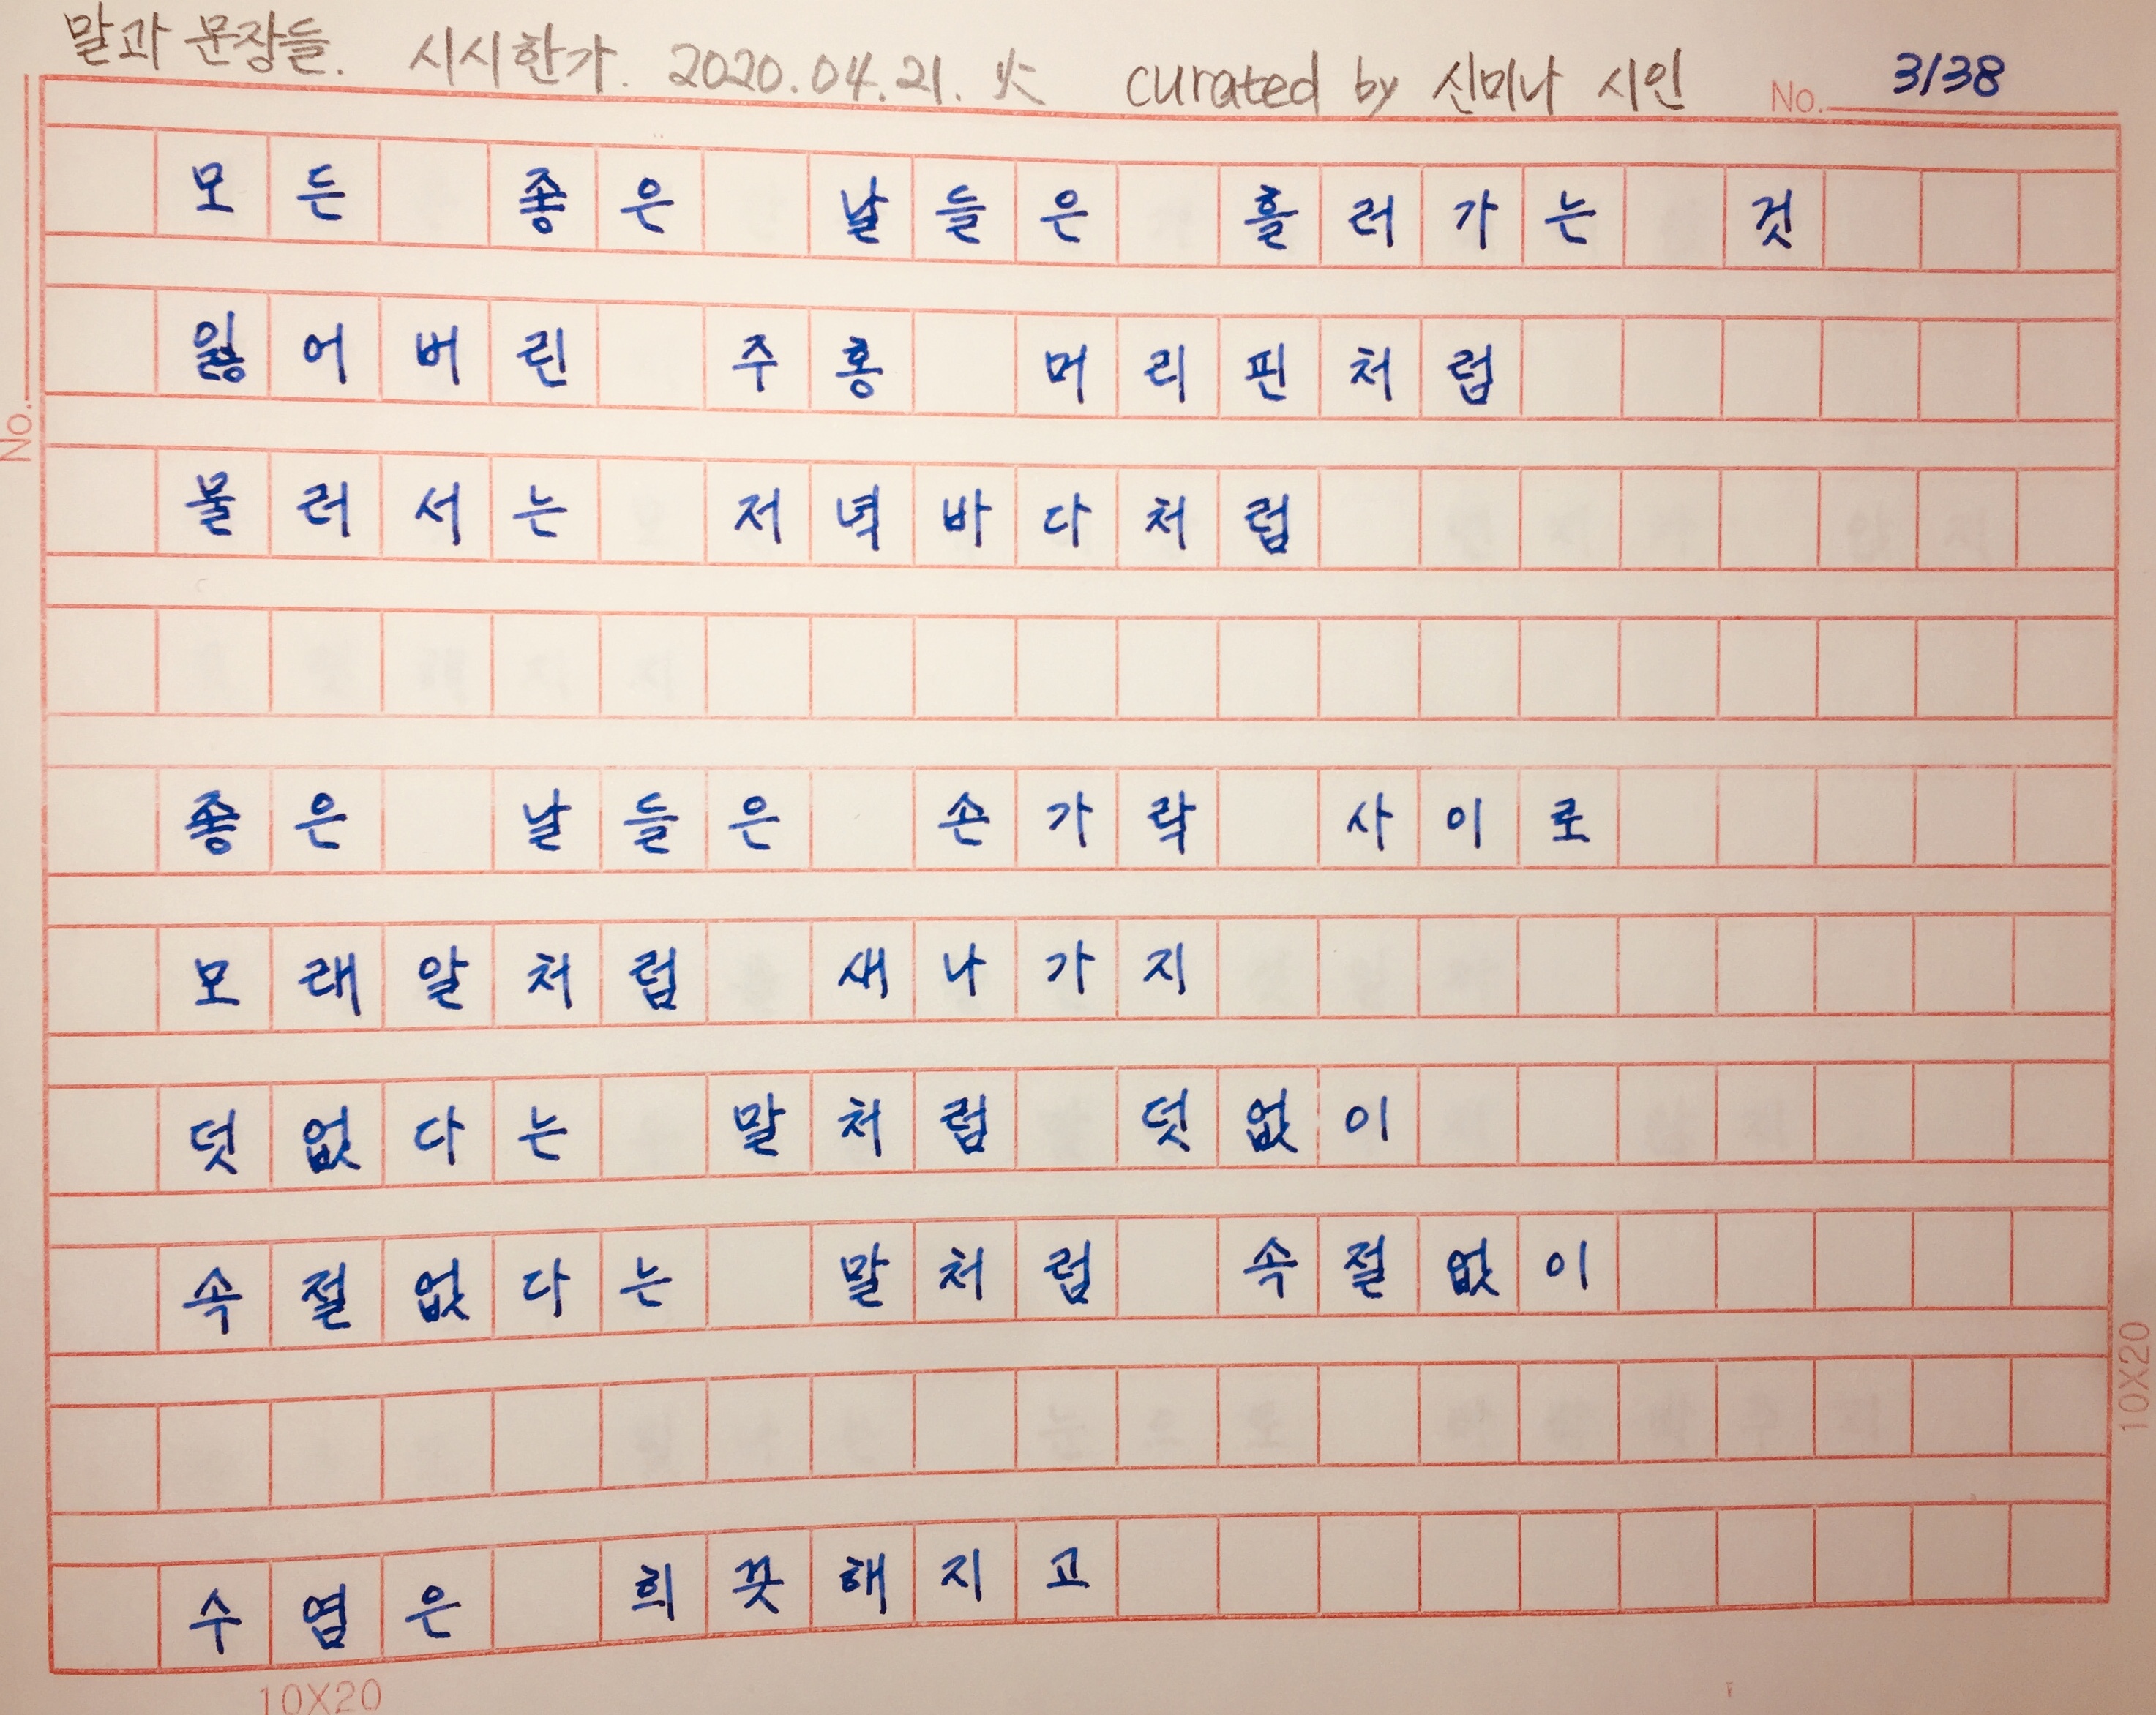 말과 문장들. 시시한가. 2020.04.21. 火 curated by 신미나 시인 No. 3/38
모든 좋은 날들은 흘러가는 것
잃어버린 주홍 머리핀처럼
No.
물러서는 저녁바다처럼
좋은 날들은 손가락 사이로
모래알처럼 새나가지
덧없다는 말처럼 덧없이
속절없다는 말처럼 속절없이
10X20
수염은 희끗해지고
10X20